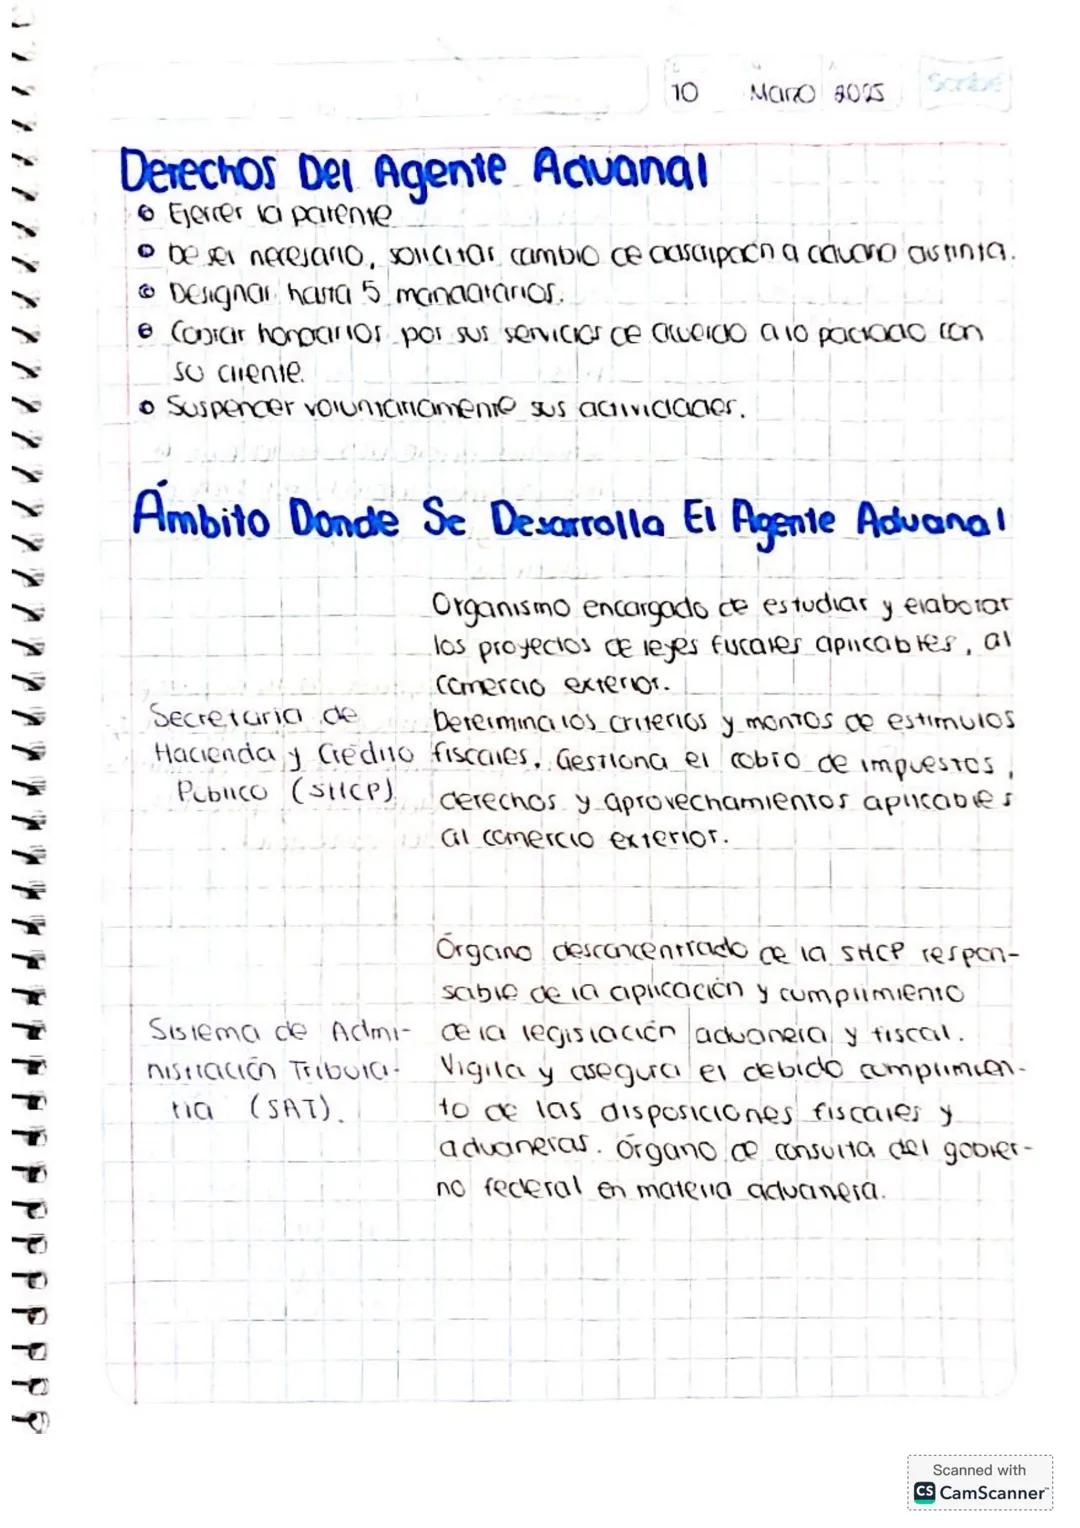 10 Marzo 2025 Scribe
Derechos Del Agente Aduanal
Ejercer la patente
De ser necesario, solicitar cambio de adscripción a aduana distinta.
Designar hasta 5 mandatarios.
Cobrar honorarios por sus servicios de acuerdo a lo pactado con
su cliente.
Suspender voluntariamente sus actividades.
Ámbito Donde Se Desarrolla El Agente Aduanal
Organismo encargado de estudiar y elaborar
los proyectos de leyes fiscales aplicables, al
comercio exterior.
Secretaria de
Determina los criterios y montos de estimulos
Hacienda y Crédito
fiscales. Gestiona el cobro de impuestos,
Publico (SHCP)
derechos y aprovechamientos aplicables
al comercio exterior.
Órgano desconcentrado de la SHCP respon-
sable de la aplicación y cumplimiento
Sistema de Admi-
de la legislación aduanera y fiscal.
nistración Tributa-
Vigila y asegura el debido cumplimien-
ria (SAT).
to de las disposiciones fiscales y
aduaneras. Órgano de consulta del gobier-
no federal en materia aduanera.
Scanned with
CS CamScanner